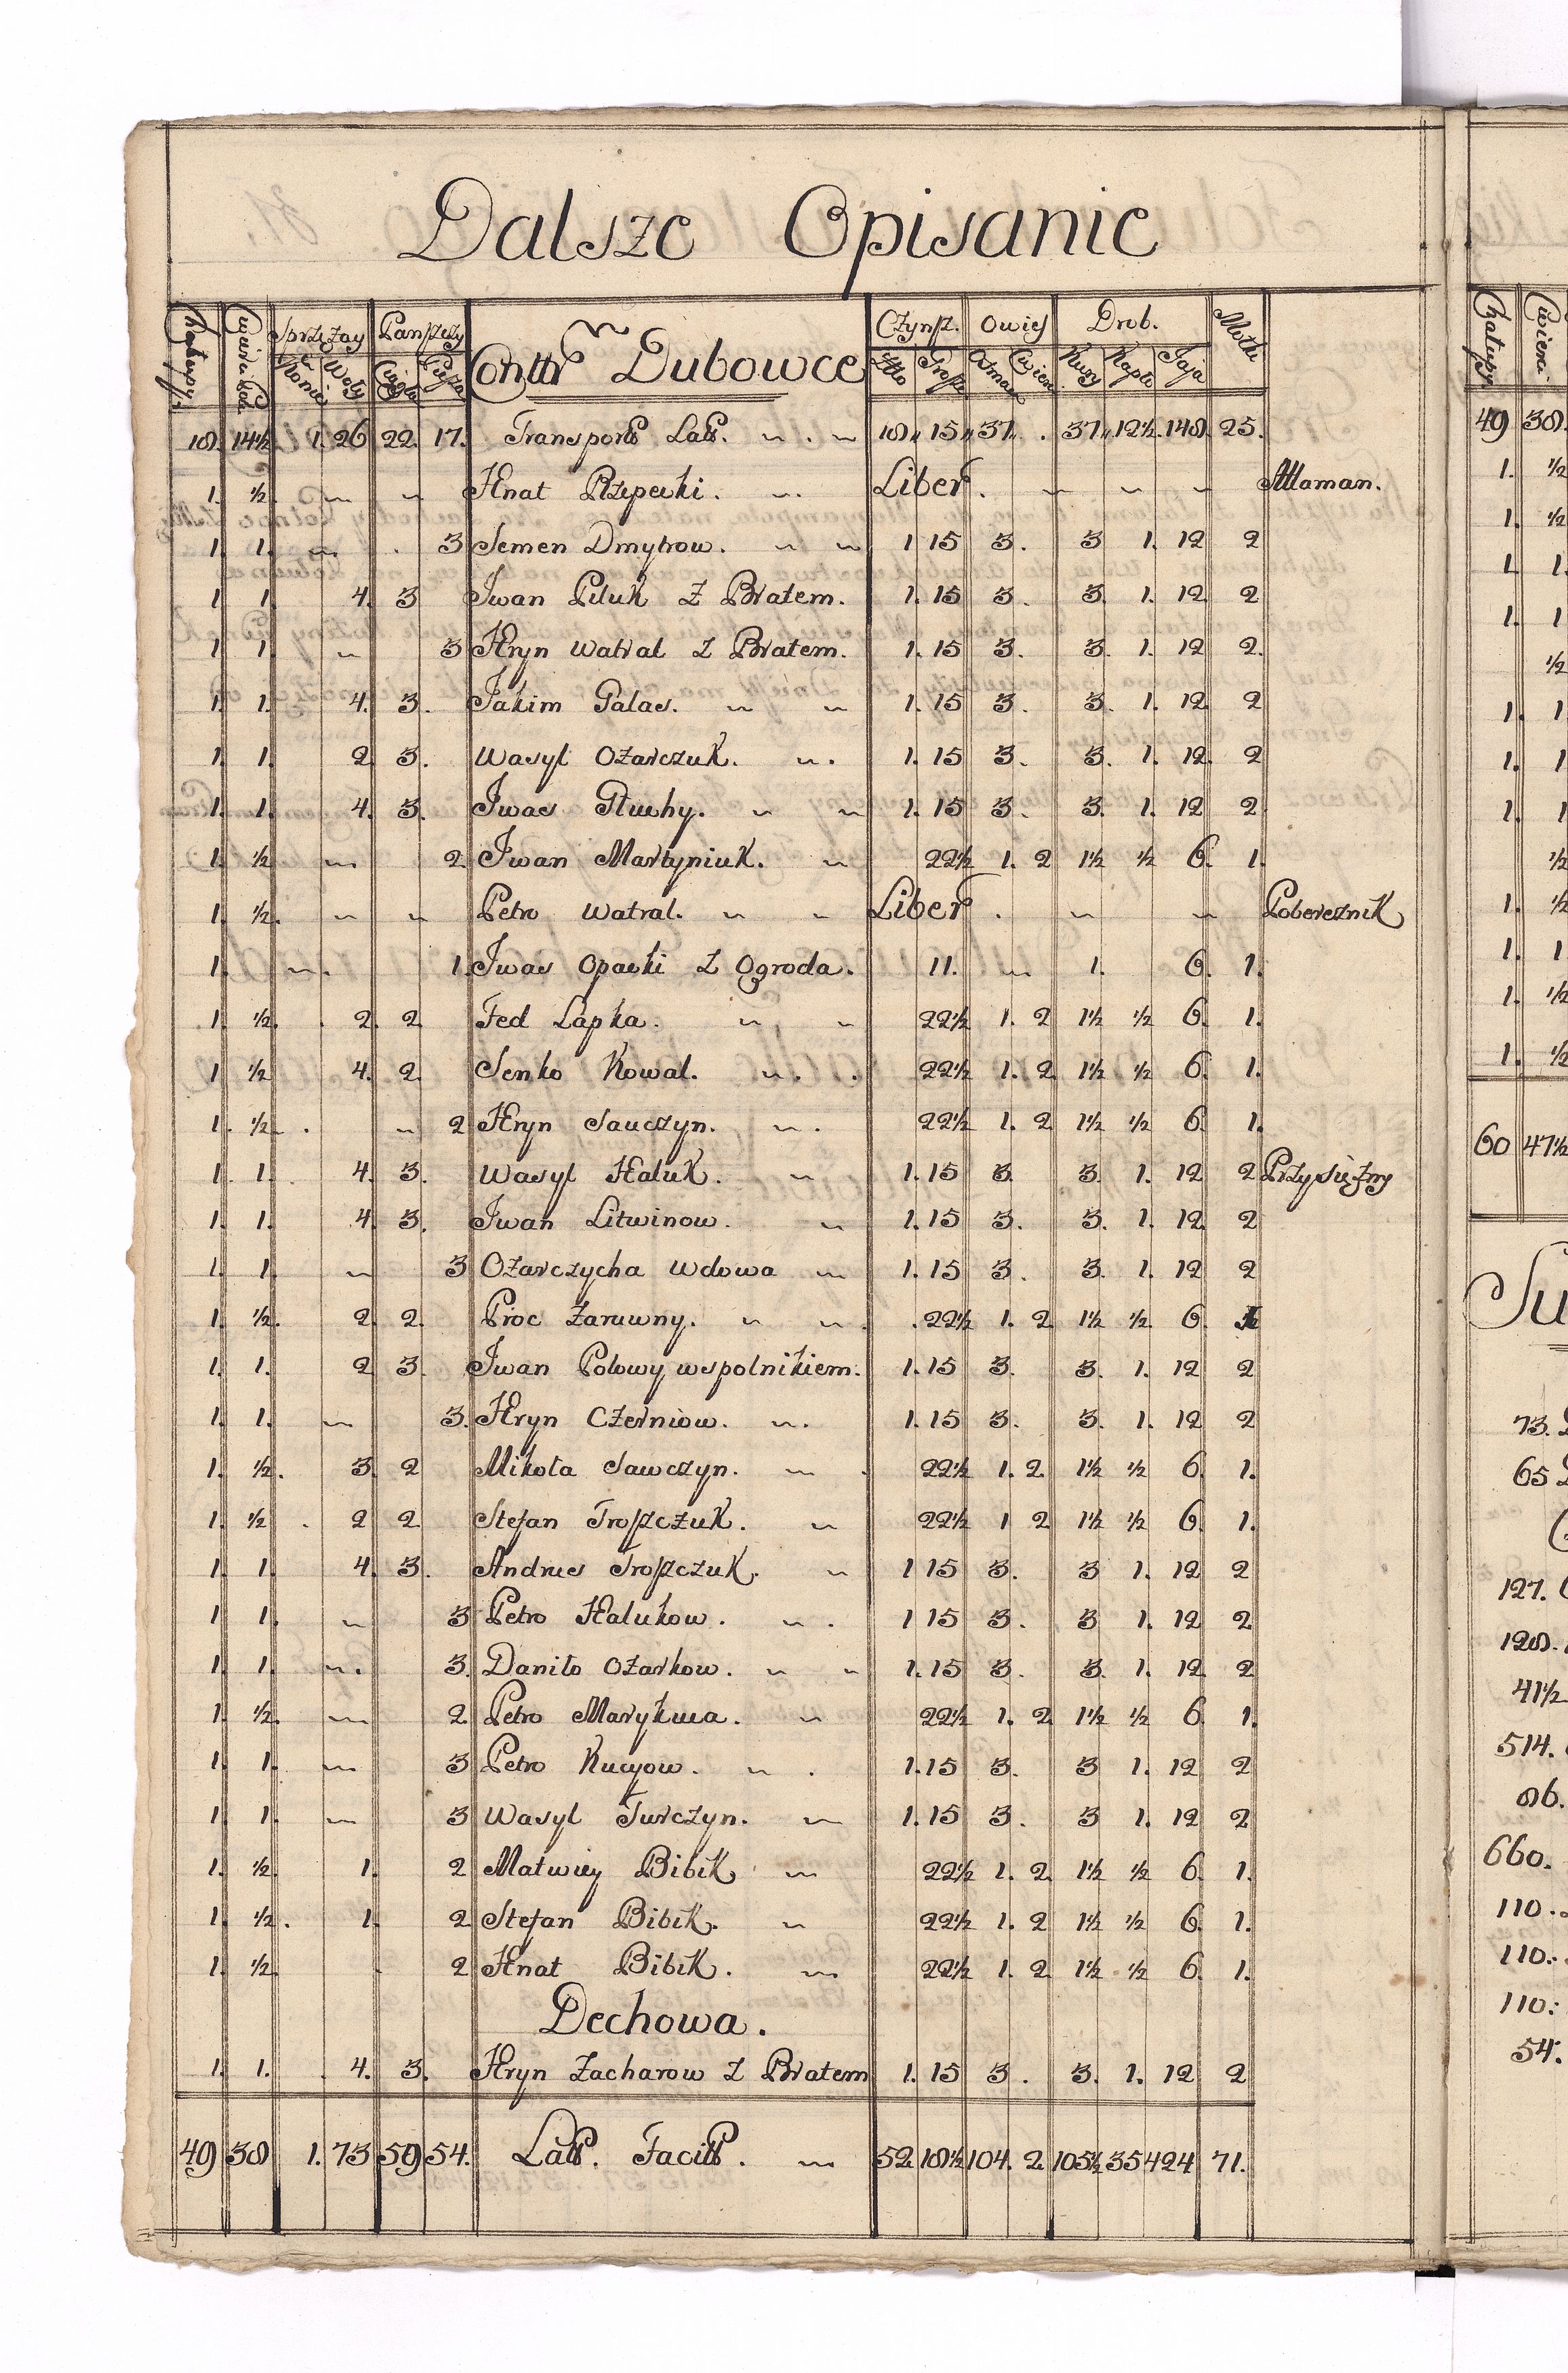 Dalsze Opisanie
Chałupy. Ćwierci Sprzężay Panszczyzny Contr Dubowce Czynsz. Owies Drob. Motki
Konie Woły Ciągła Piesza Złło Grosze Osmac Ćwierc Kury Kapło Jaja
18. 14½ 1. 26 22. 17. Transport Lats. 18 15 37 . 37 12½ 148 25.
1. ½ Hnat Rzepecki. Liber. Ataman.
1. 1. 3 Semen Dmytrow. 1 15 3. 3 1. 12 2
1. 1. 4. 3 Iwan Piluk Z Bratem. 1. 15 3. 3. 1. 12 2
1. 1. 3 Hryn Watral Z Bratem. 1. 15 3. 3. 1. 12 2.
1. 1. 4. 3. Jakim Palac. 1. 15 3. 3. 1. 12 2
1. 1. 2 3. Wasyl Ożarczuk. 1. 15 3. 3. 1. 12 2
1. 1. 4. 3. Iwas Głuchy. 1. 15 3. 3. 1. 12 2
1. ½ 2. Iwan Martyniuk. 22½ 1. 2 1½ ½ 6. 1.
1. ½. Petro Watral. Liber. Pobereznik
1. 1. Iwas Opacki Z Ogroda. 11. 1. 6. 1.
1. ½ 2. 2 Fed Łapka. 22½ 1. 2 1½ ½ 6. 1.
1. ½ 4. 2. Senko Kowal. 22½ 1. 2. 1½ ½ 6. 1.
1. ½ 2 Hryn Sauczyn. 22½ 1. 2. 1½ ½ 6. 1.
1. 1. 4. 3. Wasyl Haluk. 1. 15 3. 3. 1. 12 2 Przysiężny
1. 1. 4. 3. Iwan Litwinow. 1. 15 3. 3. 1. 12 2
1. 1. 3 Ożarczycha Wdowa 1. 15 3. 3. 1. 12 2
1. ½. 2. 2. Proc Zaruwny. 22½ 1. 2. 1½ ½. 6. 1
1. 1. 2 3. Iwan Połowy wspolnikiem. 1. 15 3. 3. 1. 12 2
1. 1. 3. Hryn Czerniow. 1. 15 3. 3. 1. 12 2
1. ½. 3. 2 Mikoła Sawczyn. 22½ 1. 2. 1½ ½ 6. 1.
1. ½ 2 2 Stefan Troszczuk. 22½ 1 2 1½ ½ 6. 1.
1. 1. 4. 3. Andrus Troszczuk. 1 15 3. 3 1. 12 2
1. 1. 3 Petro Halukow. 1 15 3. 3 1. 12 2
1. 1. 3. Daniło Ożarkow. 1. 15 3. 3. 1. 12 2
1. ½. 2. Petro Marykwa. 22½ 1. 2. 1½ ½ 6. 1.
1. 1. 3 Petro Kucyow. 1. 15 3. 3 1. 12 2
1. 1. 3 Wasyl Turczyn. 1. 15 3. 3 1. 12 2
1. ½ 1. 2 Matwiy Bibik 22½ 1. 2. 1½ ½ 6. 1.
1. ½. 1. 2 Stefan Bibik. 22½ 1. 2 1½ ½ 6. 1.
1. ½ 2 Hnat Bibik. 22½ 1. 2. 1½ ½ 6. 1.
Dechowa.
1. 1. 4. 3. Hryn Zacharow Z Bratem 1. 15 3. 3. 1. 12 2
49 38 1. 73 59 54. Lats. Facit. 52 18½ 104. 2. 105½ 35 424 71.
Chałupy Ćwierci
49 38.
1. ½
1. ½
1. 1.
1. 1
½
1. 1
1. 1
1. 1
½
1. ½
1. 1
1. ½
1. ½
60 47½
Su
73.
65
127.
128.
41½
514.
86.
660.
110.
110.
110.
54.